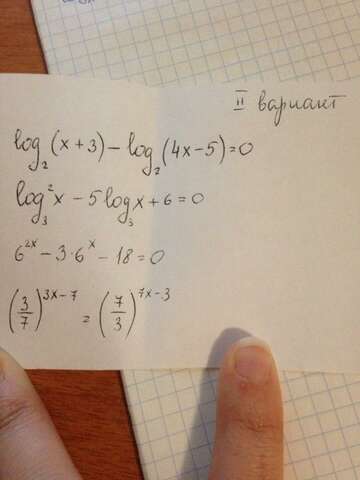 II вариант
log₂(x+3)−log₂(4x−5)=0
log₃²x − 5log₃x+6=0
6²ˣ−3·6ˣ−18=0
(3/7)^(3x−7) = (7/3)^(7x−3)